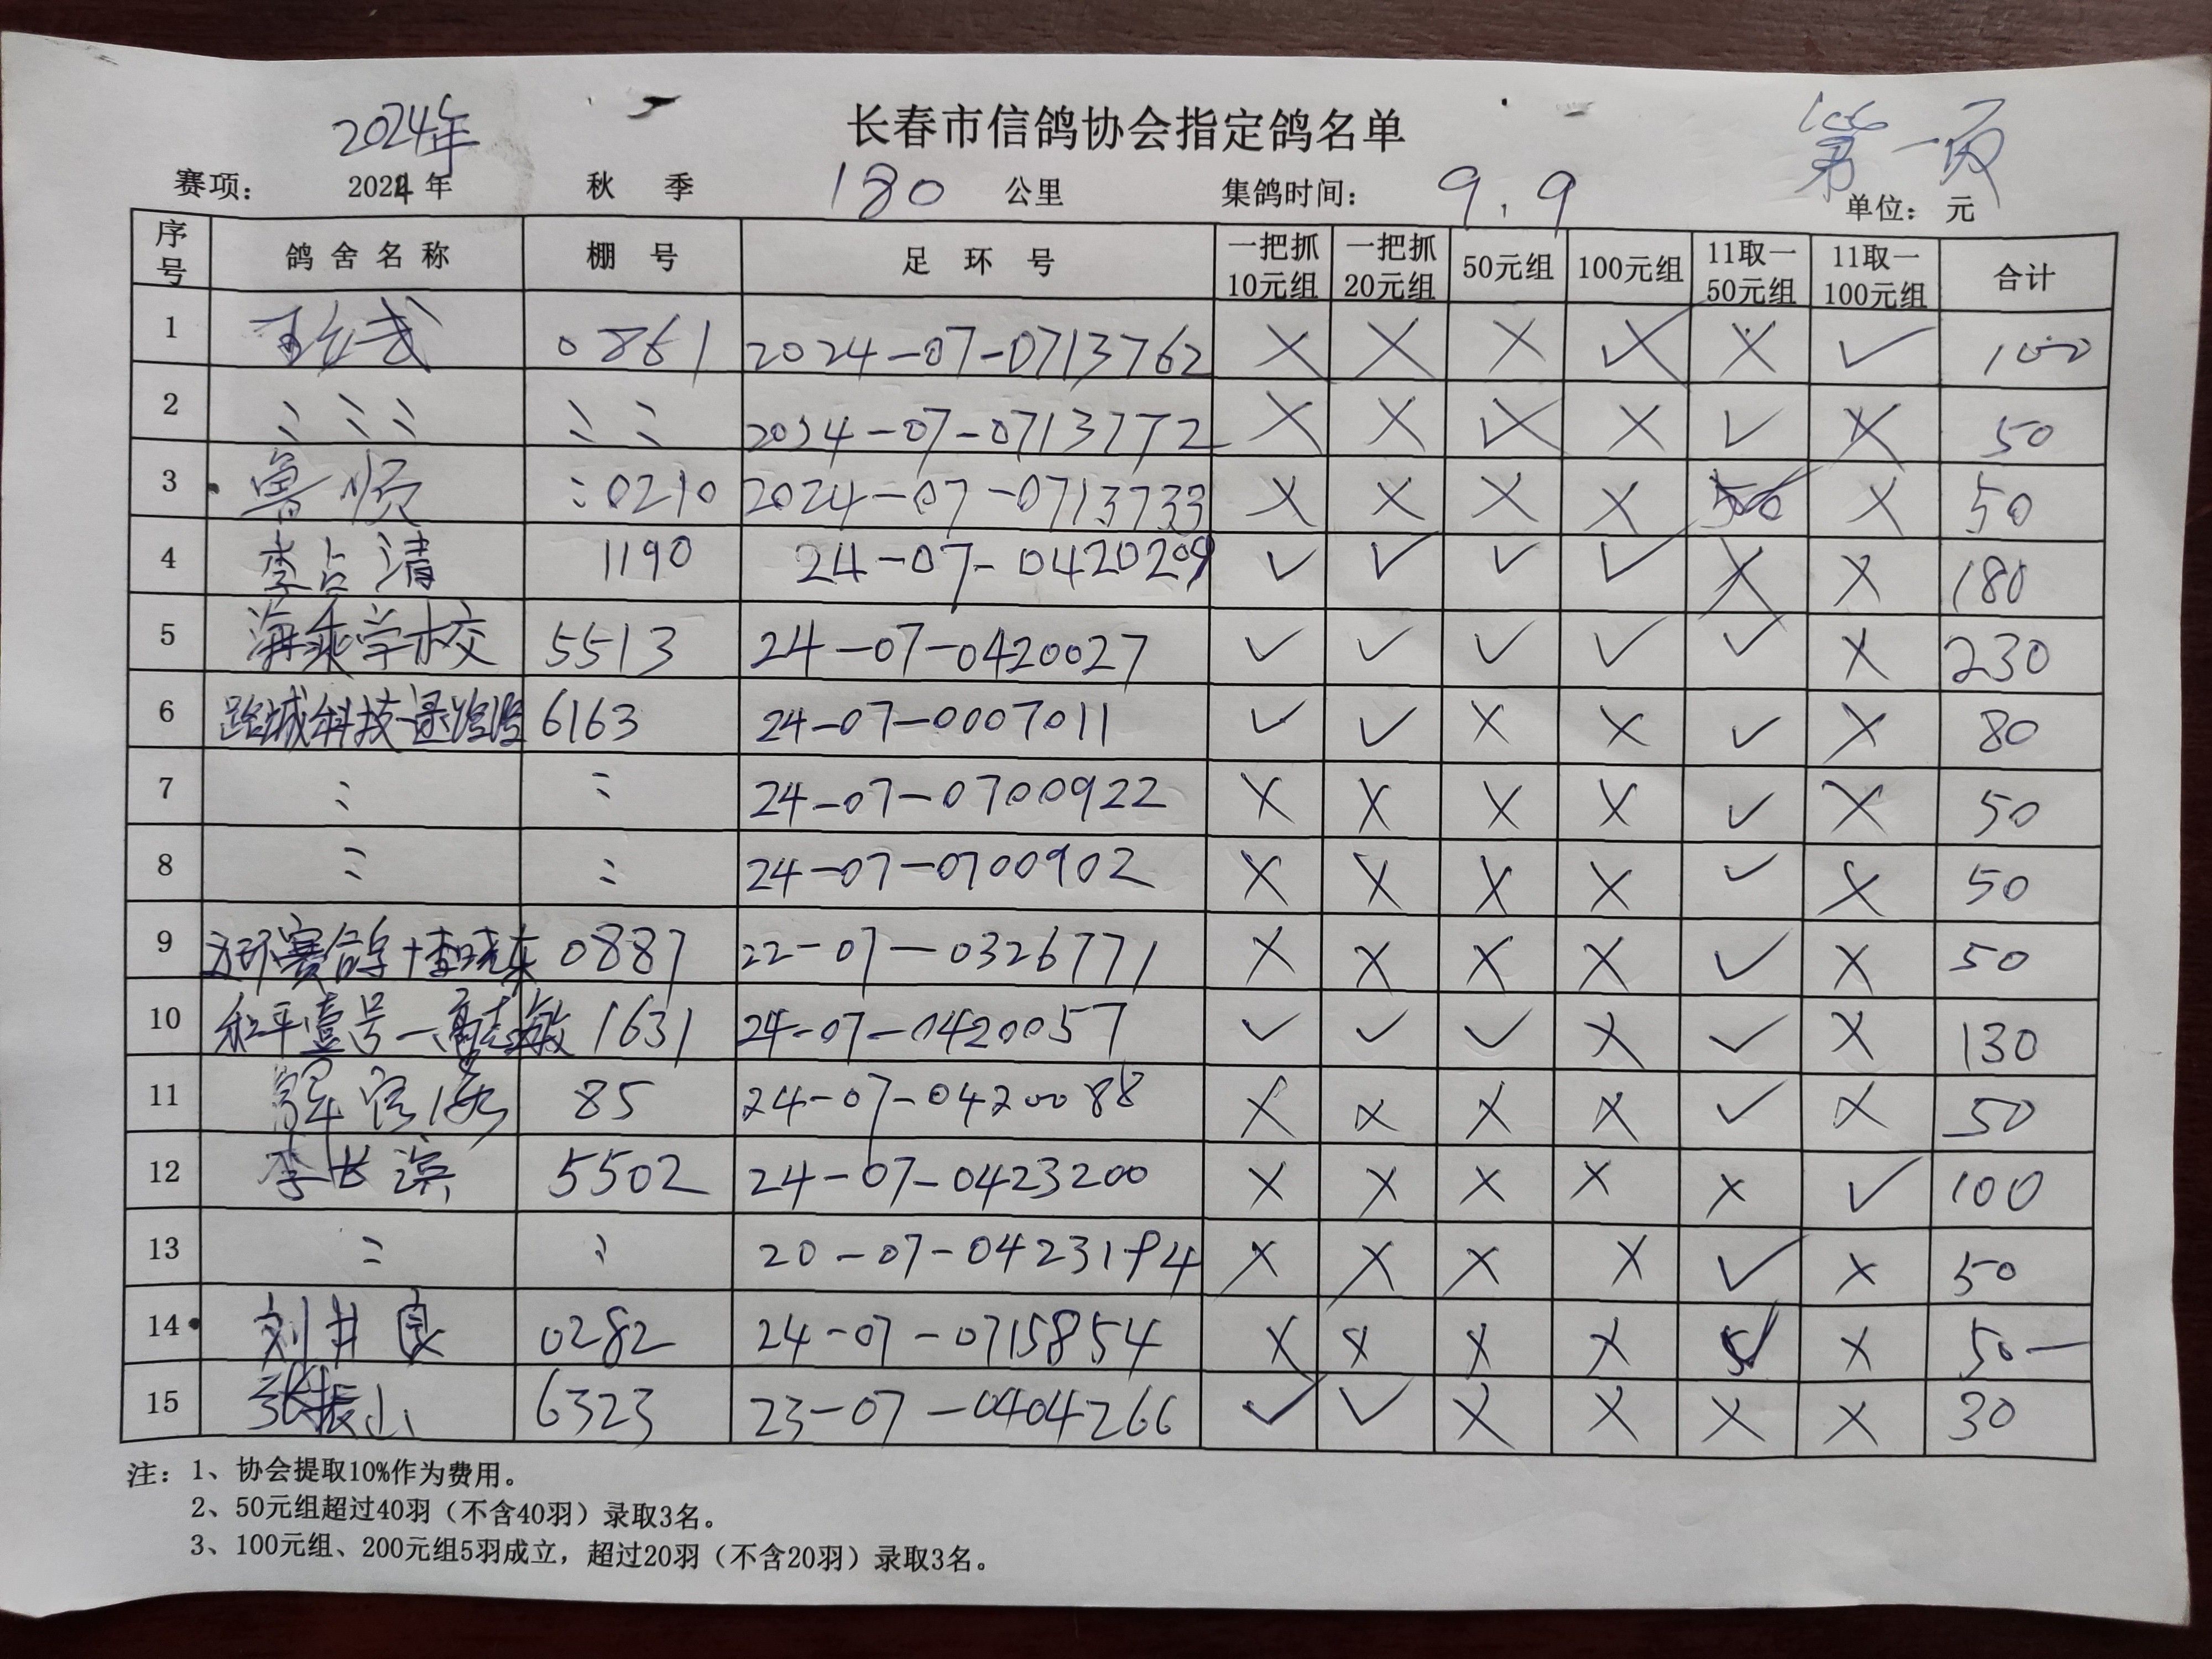 2024年
长春市信鸽协会指定鸽名单
第一页
赛项: 2024年 秋 季 180 公里 集鸽时间: 9.9 单位: 元
序号 鸽舍名称 棚号 足环号 一把抓10元组 一把抓20元组 50元组 100元组 11取一50元组 11取一100元组 合计
1 0861 2024-07-0713762 × × × × × ✓ 100
2 〃 〃 〃 〃 〃 2024-07-0713772 × × × × ✓ × 50
3 鲁顺 0210 2024-07-0713733 × × × × 50 × 50
4 李占清 1190 24-07-0420209 ✓ ✓ ✓ ✓ × × 180
5 海乘学校 5513 24-07-0420027 ✓ ✓ ✓ ✓ ✓ × 230
6 路城科技 6163 24-07-0007011 ✓ ✓ × × ✓ × 80
7 〃 〃 24-07-0700922 × × × × ✓ × 50
8 〃 〃 24-07-0700902 × × × × ✓ × 50
9 赛鸽+李晓东 0887 22-07-0326771 × × × × ✓ × 50
10 和平壹号-高志敏 1631 24-07-0420057 ✓ ✓ ✓ × ✓ × 130
11 85 24-07-0420088 × × × × ✓ × 50
12 李长滨 5502 24-07-0423200 × × × × × ✓ 100
13 〃 〃 20-07-0423194 × × × × ✓ × 50
14 刘井良 0282 24-07-0715854 × × × × ✓ × 50-
15 张振山 6323 23-07-0404266 ✓ ✓ × × × × 30
注: 1、协会提取10%作为费用。
2、50元组超过40羽(不含40羽)录取3名。
3、100元组、200元组5羽成立,超过20羽(不含20羽)录取3名。